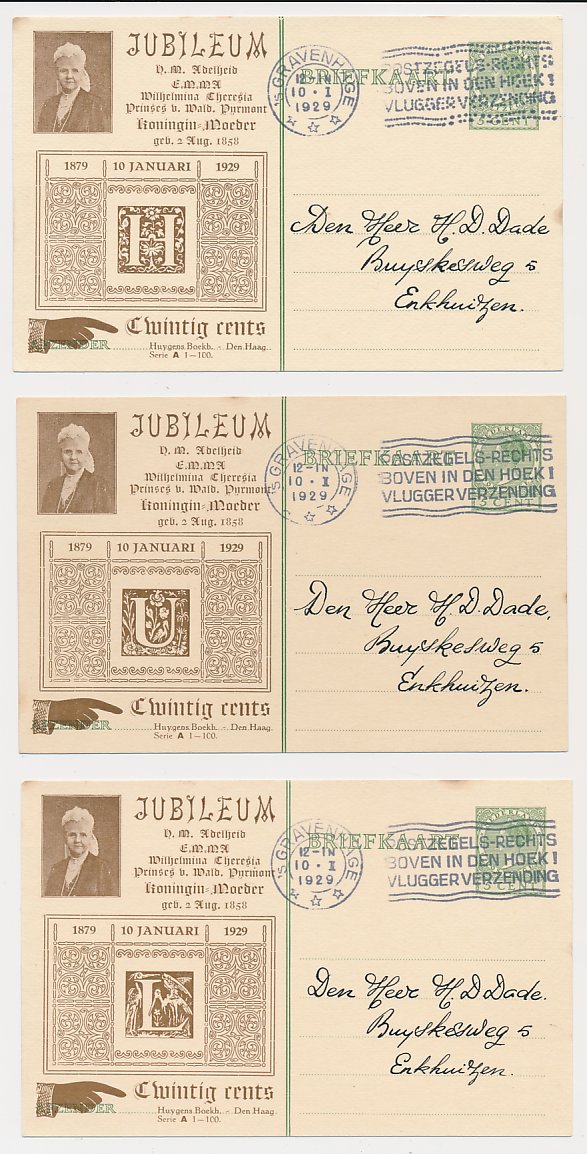 JUBILEUM
H. M. Adelheid
E.M.M.A
Wilhelmina Theresia
Prinses v. Wald. Pyrmont
Koningin=Moeder
geb. 2 Aug. 1858
1879 10 JANUARI 1929
H
Twintig cents
AFZENDER
Huygens Boekh. - Den Haag.
Serie A 1—100.
BRIEFKAART
'S GRAVENHAGE
12-1N
10·I
1929
POSTZEGELS-RECHTS
BOVEN IN DEN HOEK!
VLUGGER VERZENDING
5 CENT
Den Heer H. D. Dade
Buyskesweg 5
Enkhuizen.
JUBILEUM
H. M. Adelheid
E.M.M.A
Wilhelmina Theresia
Prinses v. Wald. Pyrmont
Koningin=Moeder
geb. 2 Aug. 1858
1879 10 JANUARI 1929
U
Twintig cents
AFZENDER
Huygens Boekh. - Den Haag.
Serie A 1—100.
BRIEFKAART
'S GRAVENHAGE
12-1N
10·I
1929
NEDERLAND
POSTZEGELS-RECHTS
BOVEN IN DEN HOEK!
VLUGGER VERZENDING
5 CENT
Den Heer H. D. Dade,
Buyskesweg 5
Enkhuizen.
JUBILEUM
H. M. Adelheid
E.M.M.A
Wilhelmina Theresia
Prinses v. Wald. Pyrmont
Koningin=Moeder
geb. 2 Aug. 1858
1879 10 JANUARI 1929
L
Twintig cents
AFZENDER
Huygens Boekh. - Den Haag.
Serie A 1—100.
BRIEFKAART
'S GRAVENHAGE
12-1N
10·I
1929
NEDERLAND
POSTZEGELS-RECHTS
BOVEN IN DEN HOEK!
VLUGGER VERZENDING
5 CENT
Den Heer H. D. Dade.
Buyskesweg 5
Enkhuizen.